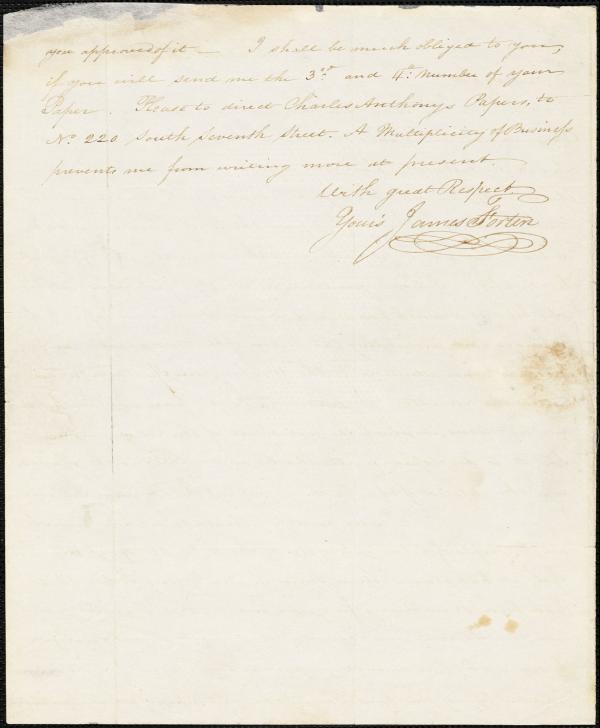 you approved of it — I shall be much obliged to you,
if you will send me the 3rd and 4th Number of your
Paper. Please to direct Charles Anthonys Papers, to
No 220 South Seventh Street. A Multiplicity of Business
prevents me from writing more at present
With great Respect
Yours James Forten